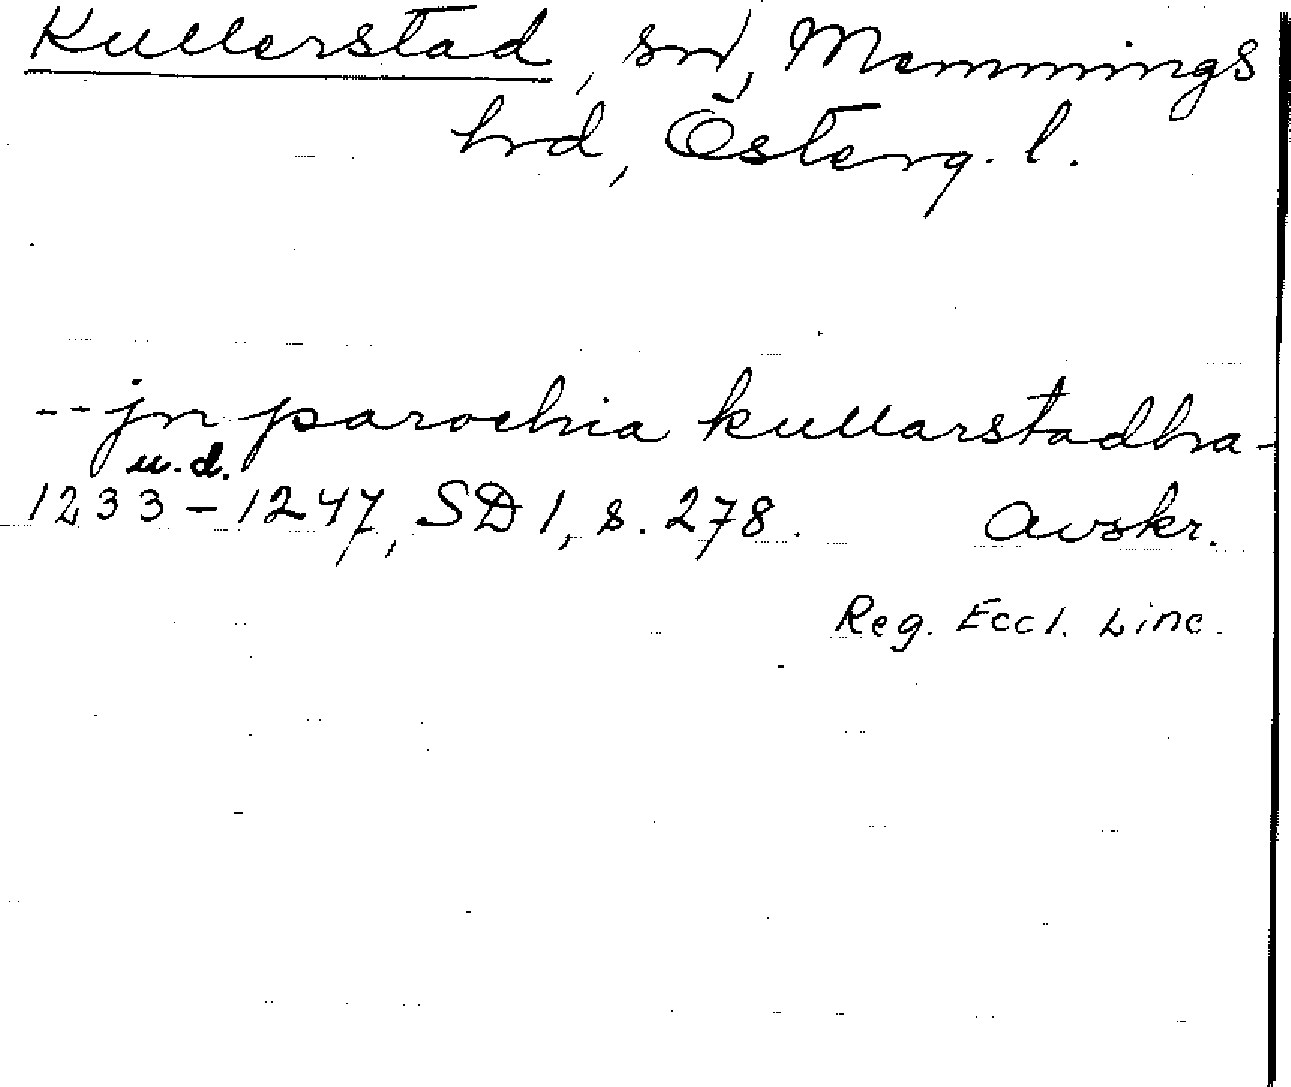 Kullerstad, sn, Memmings
hrd, Österg. l.
--jn parochia kullarstadha-
u.d.
1233-1247, SD 1, s. 278. Avskr.
Reg. Eccl. Linc.